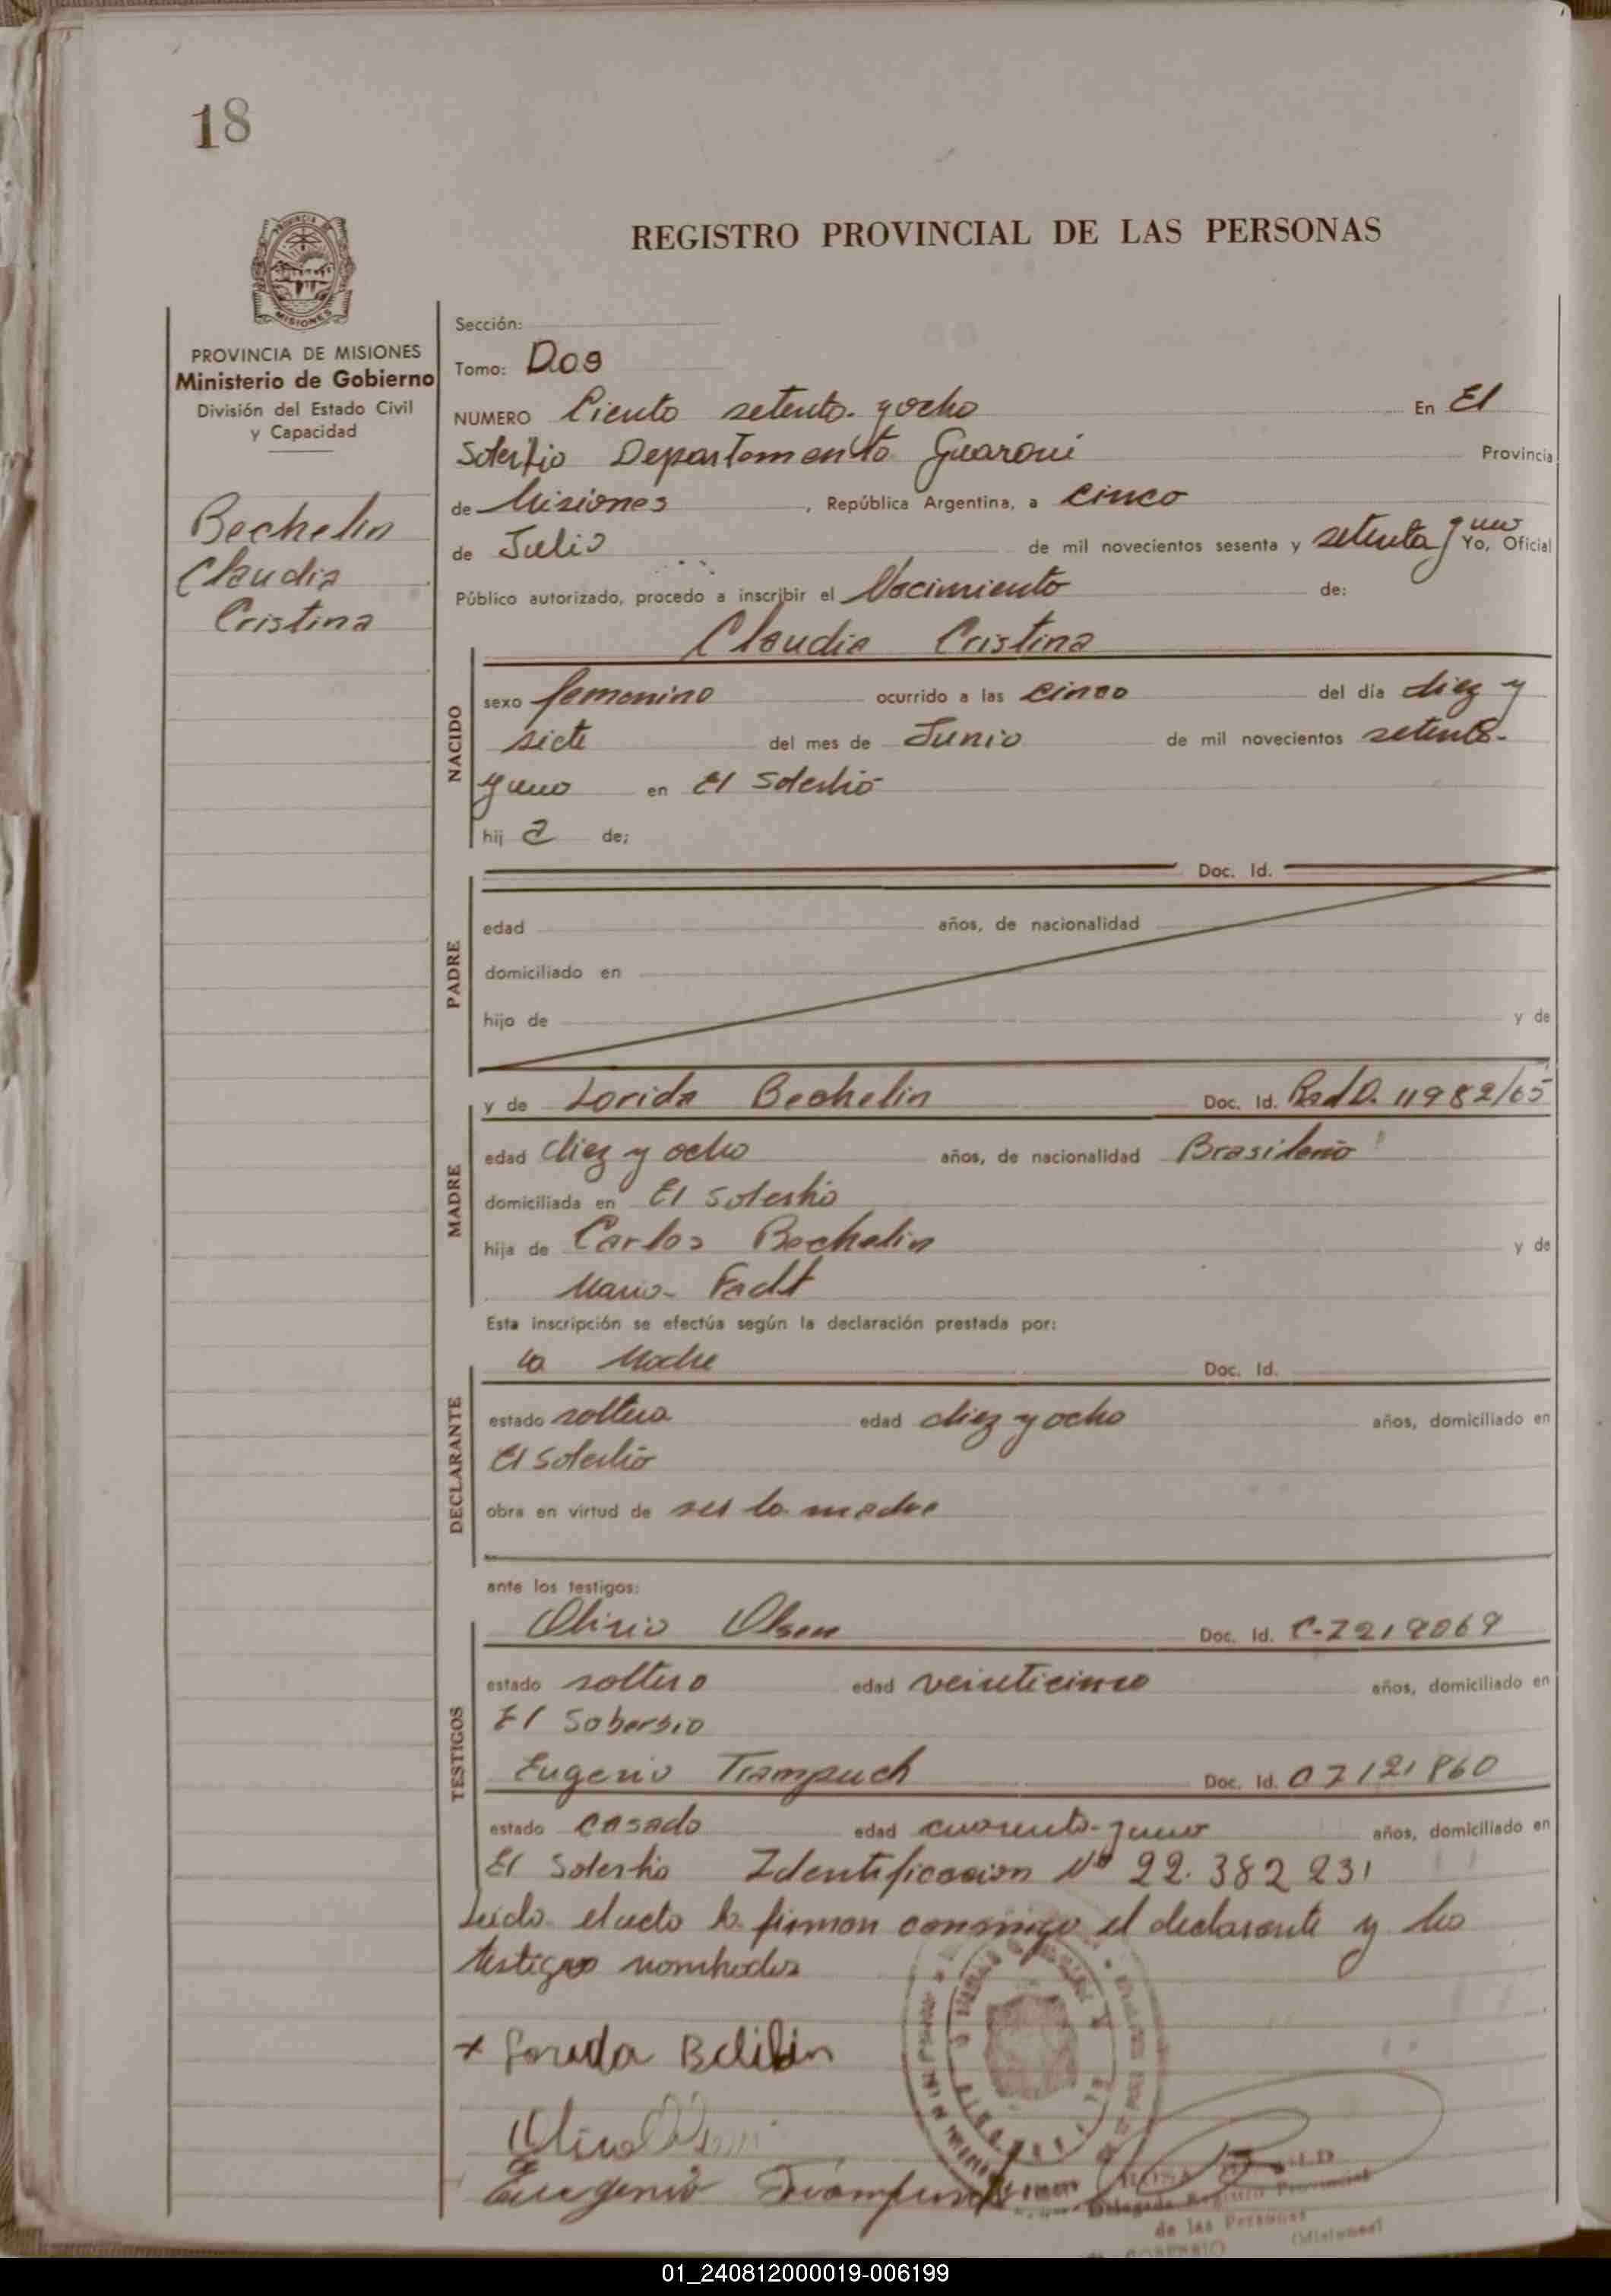 18
REGISTRO PROVINCIAL DE LAS PERSONAS
MISIONES
PROVINCIA DE MISIONES
Ministerio de Gobierno
División del Estado Civil
y Capacidad
Bechelin
Claudia
Cristina
Sección:
Tomo: Dos
NUMERO Ciento setenta y ocho En El
Soberbio Departamento Guarani Provincia
de Misiones, República Argentina, a cinco
de Julio de mil novecientos sesenta y setenta y uno Yo, Oficial
Público autorizado, procedo a inscribir el Nacimiento de:
Claudia Cristina
NACIDO
sexo femenino ocurrido a las cinco del día diez y
siete del mes de Junio de mil novecientos setenta
y uno en El Soberbio
hij a de;
PADRE
Doc. Id.
edad años, de nacionalidad
domiciliado en
hijo de y de
MADRE
y de Lorida Bechelin Doc. Id. Rad. 11982/65
edad diez y ocho años, de nacionalidad Brasileña
domiciliada en El Soberbio
hija de Carlos Bechelin y de
Maria
Esta inscripción se efectúa según la declaración prestada por:
DECLARANTE
la Madre Doc. Id.
estado soltera edad diez y ocho años, domiciliado en
El Soberbio
obra en virtud de ser la madre
ante los testigos:
TESTIGOS
Olirio Olsen Doc. Id. C-7219069
estado soltero edad veinticinco años, domiciliado en
El Soberbio
Eugenio Trampuch Doc. Id. 07121860
estado casado edad cuarenta y uno años, domiciliado en
El Soberbio Identificacion Nº 22.382 231
Leido el acto lo firman conmigo el declarante y los
testigos nombrados
+ Lorida
Eugenio
Delegada Registro Provincial
de las Personas
(Misiones)
01_240812000019-006199